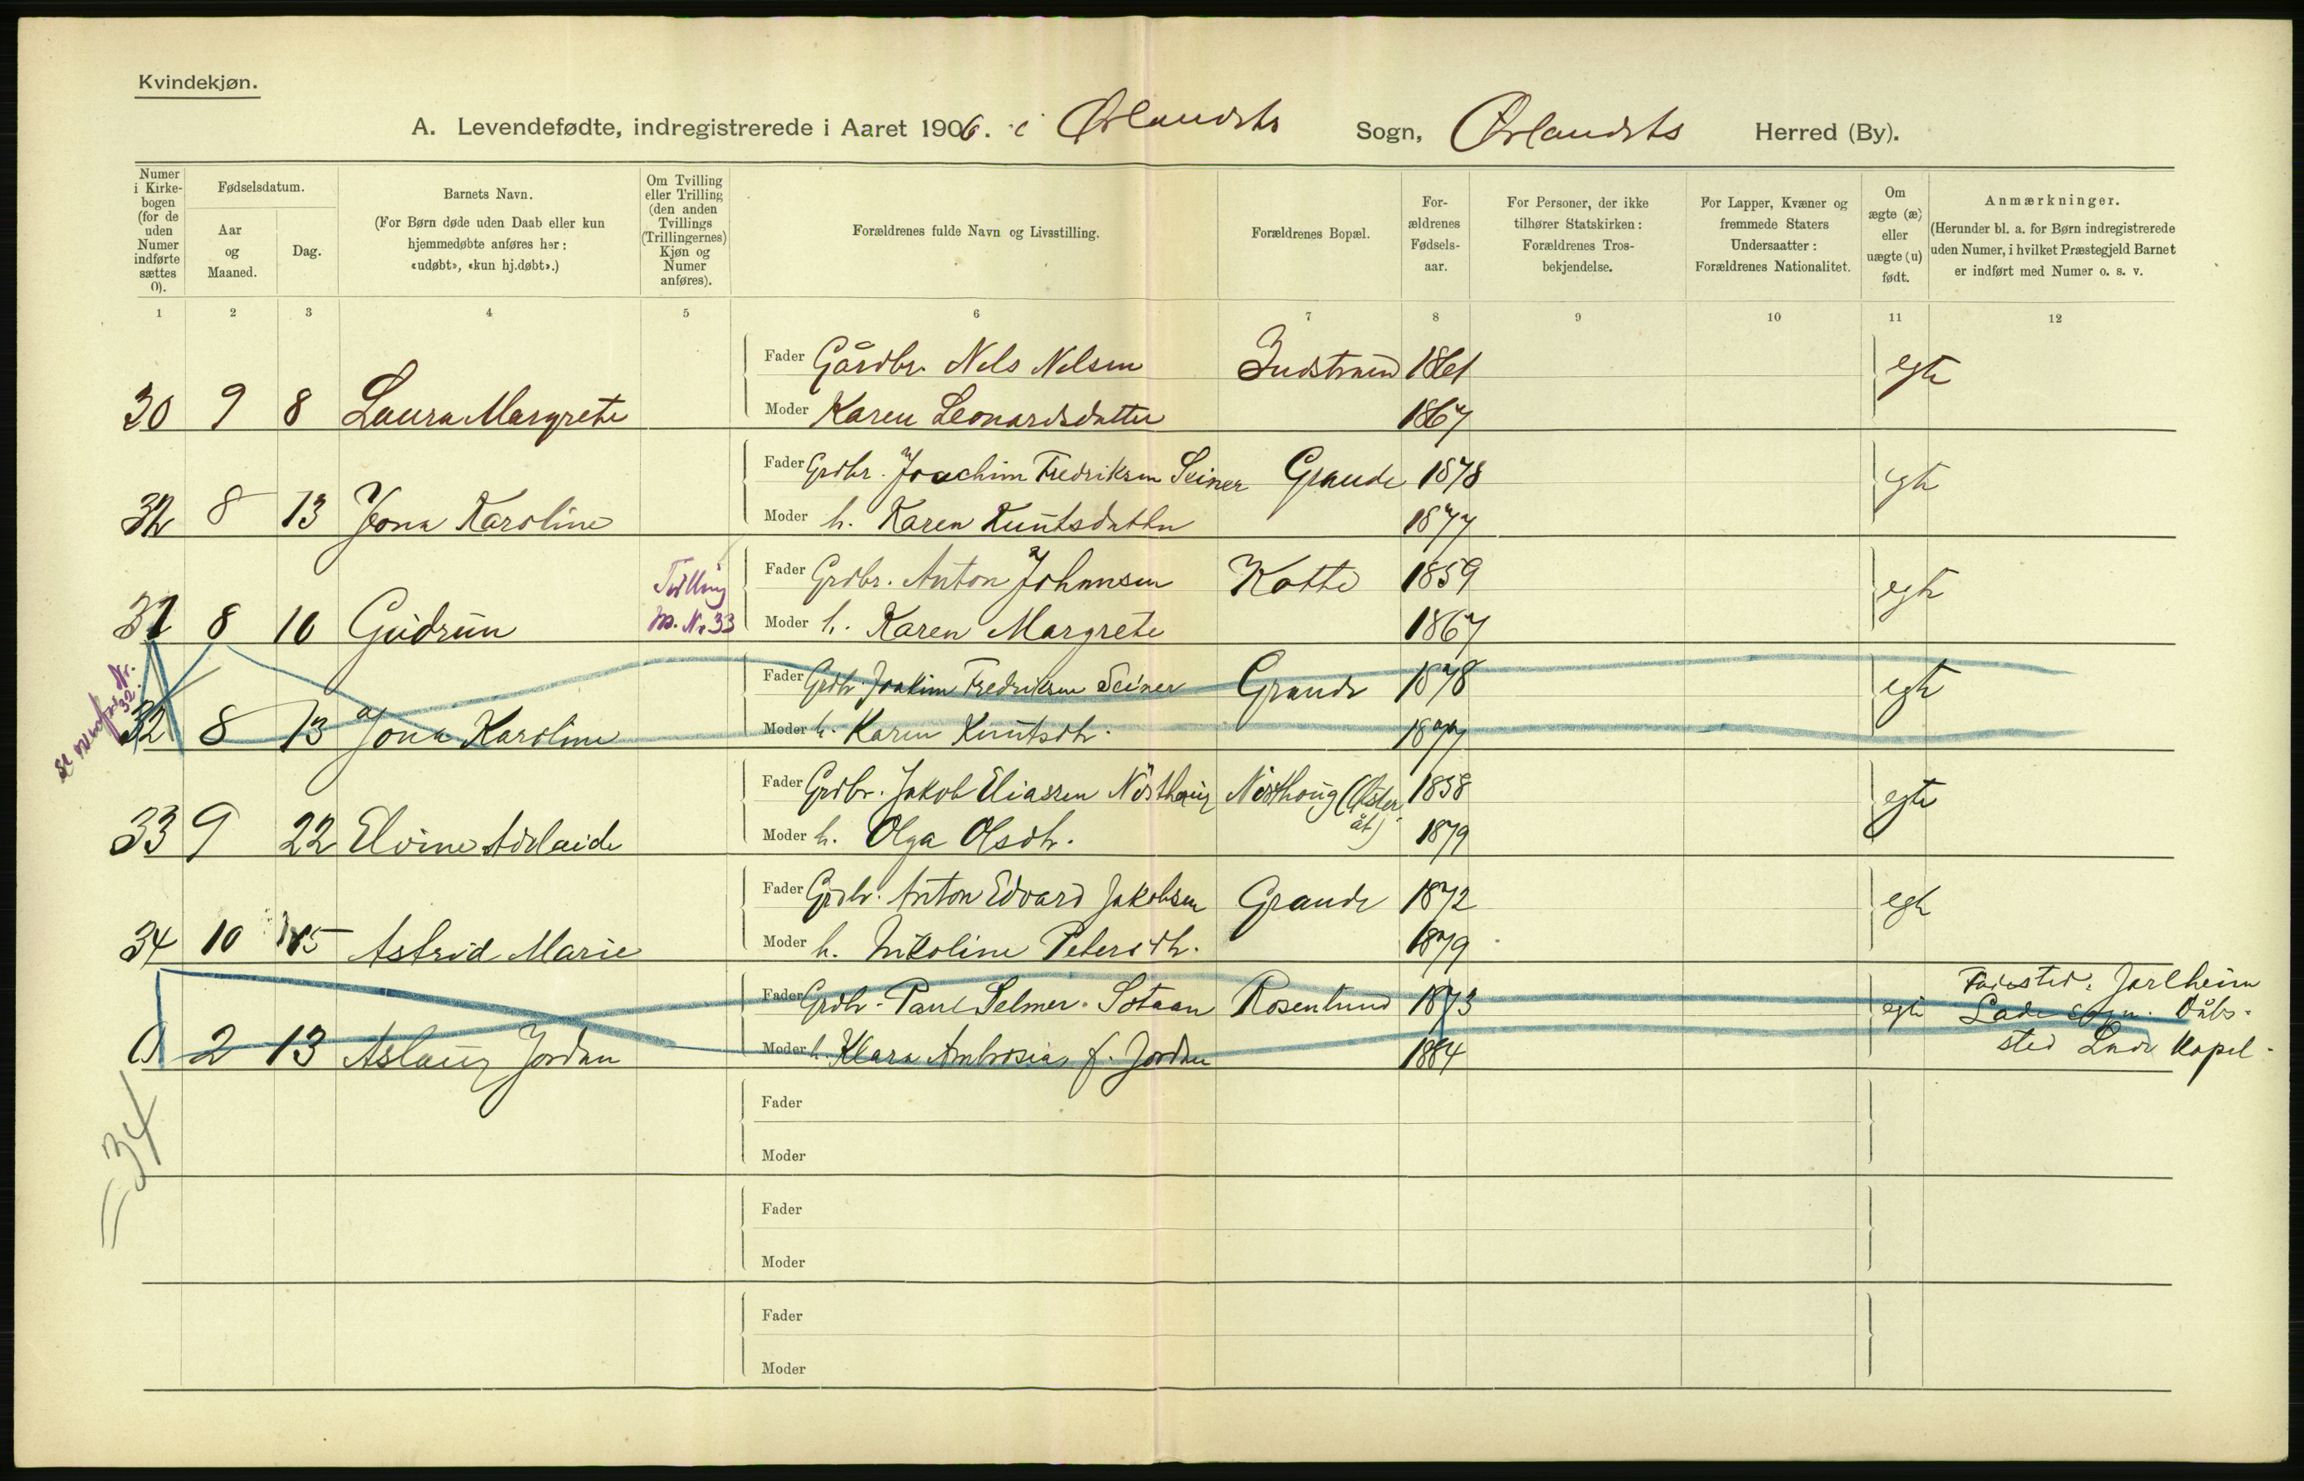 Kvindekjøn.
A. Levendefødte, indregistrerede i Aaret 1906. i Ørlandets Sogn, Ørlandets Herred (By).
Numer i Kirkebogen (for de uden Numer indførte sættes 0).
Fødselsdatum.
Aar og Maaned.
Dag.
Barnets Navn.
(For Børn døde uden Daab eller kun hjemmedøbte anføres her: «udøbt», «kun hj.døbt».)
Om Tvilling eller Trilling (den anden Tvillings (Trillingernes) Kjøn og Numer anføres).
Forældrenes fulde Navn og Livsstilling.
Forældrenes Bopæl.
Forældrenes Fødselsaar.
For Personer, der ikke tilhører Statskirken: Forældrenes Trosbekjendelse.
For Lapper, Kvæner og fremmede Staters Undersaatter: Forældrenes Nationalitet.
Om ægte (æ) eller uægte (u) født.
Anmærkninger.
(Herunder bl. a. for Børn indregistrerede uden Numer, i hvilket Præstegjeld Barnet er indført med Numer o. s. v.
1 2 3 4 5 6 7 8 9 10 11 12
Fader Gårdbr. Nels Nelsen Indstrand 1861 egte
30 9 8 Laura Margrete Moder Karen Leonardsdatter 1867
Fader Grdbr. Joachim Fredriksen Seiner Grande 1878 egte
32 8 13 Jona Karoline Moder h. Karen Knutsdatter 1877
Fader Grdbr. Anton Johansen Kotte 1859 egte
31 8 10 Gudrun Tvilling m. No 33 Moder h. Karen Margrete 1867
Nr. 32
Fader Grdbr. Joakim Fredriksen Seiner Grande 1878 egte
32 8 13 Jona Karoline Moder h. Karen Knutsdtr. 1877
Fader Grdbr. Jakob Eliassen Nørthoug Nørthoug (Østeråt) 1858 egte
33 9 22 Elvine Adelaide Moder h. Olga Olsdtr. 1879
Fader Grdbr. Anton Edvard Jakobsen Grande 1872 egte
34 10 15 Astrid Marie Moder h. Nikoline Petersdtr. 1879
Fader Grdbr. Paul Selmer Sotaan Rosenlund 1873 egte Fødested: Jarlheim
Lade Sogn. Dåbs-
0 2 13 Aslaug Jordan Moder h. Klara Ambrosia f. Jordan 1884 sted Lade Kapel.
= 34
Fader
Moder
Fader
Moder
Fader
Moder